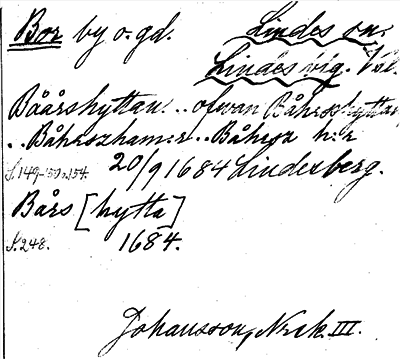 Bor by o. gd. Lindes sn.
Lindes vig. Vsl.
Båårshyttan .. ofwan Båhrshyttan
.. Båhrszham:r .. Båhrsz h:r
S. 149-50-154. 20/9 1684 Linderberg.
Bårs [hytta]
S. 248. 1684.
Johansson, Nrck. III.